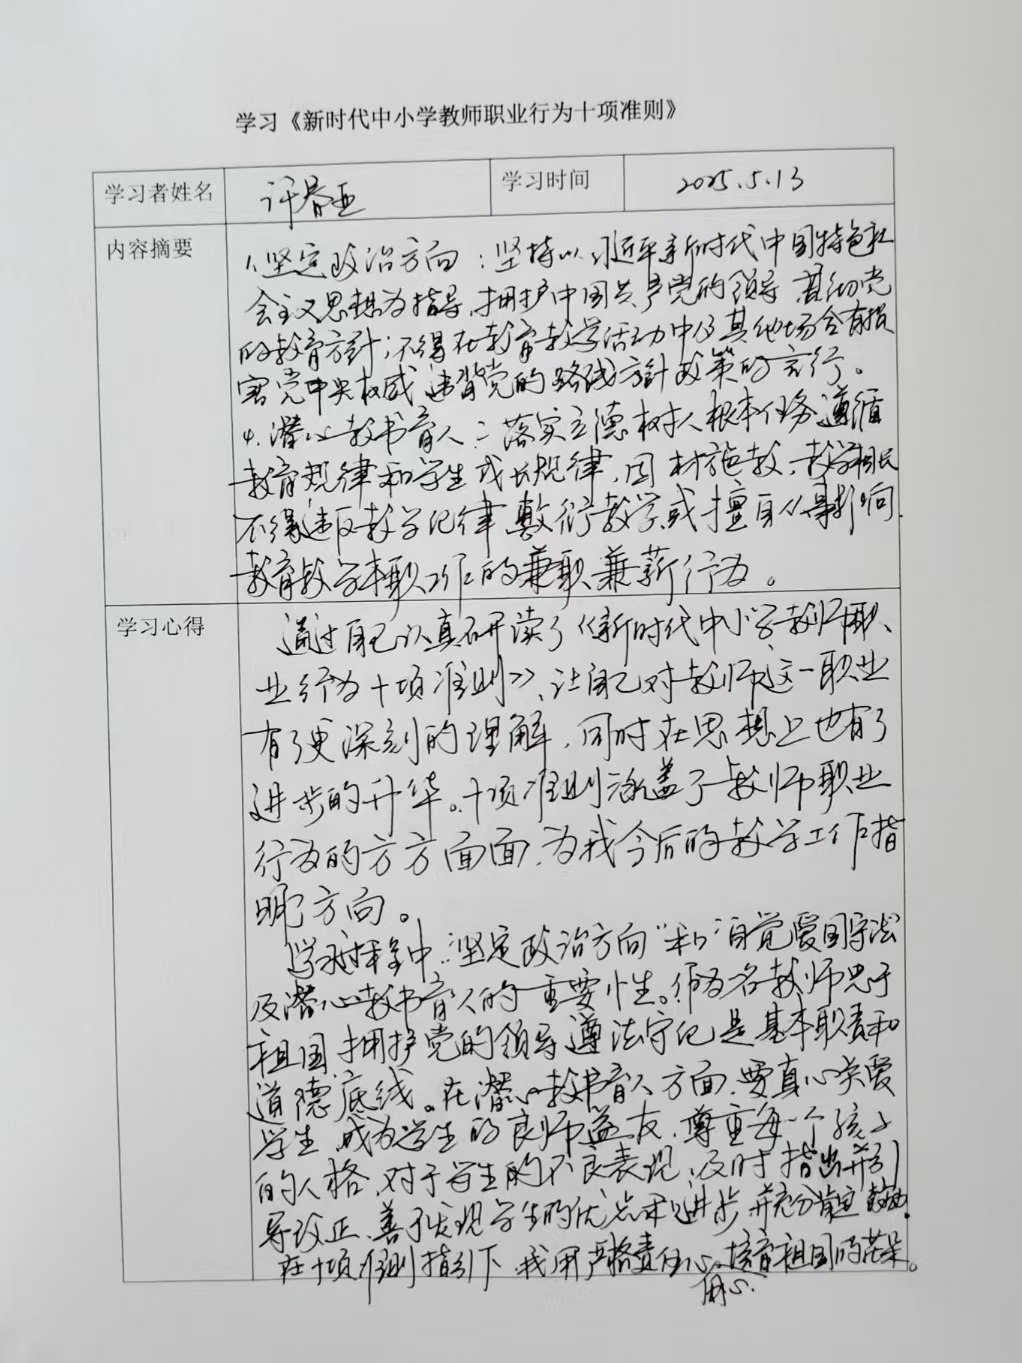 学习《新时代中小学教师职业行为十项准则》
学习者姓名 许春亚 学习时间 2025.5.13
内容摘要
1、坚定政治方向：坚持以习近平新时代中国特色社
会主义思想为指导，拥护中国共产党的领导，贯彻党
的教育方針；不得在教育教学活动中及其他场合有损
害党中央权威、违背党的路线方針政策的言行。
4.潜心教书育人：落实立德树人根本任务遵循
教育规律和学生成长规律，因材施教，教学相长
不得违反教学纪律敷衍教学或擅自从事影响
教育教学本职工作的兼职兼薪行为。
学习心得
通过自己认真研读了《新时代中小学教师职
业行为十项准则》、让自己对教师这一职业
有了更深刻的理解，同时在思想上也有了
进步的升华。十项准则涵盖了教师职业
行为的方方面面，为我今后的教学工作指
明了方向。
学习过程中："坚定政治方向"和"自觉爱国守法
及潜心教书育人的重要性。作为名教师忠于
祖国，拥护党的领导遵法守纪是基本职责和
道德底线。在潜心教书育人方面，要真心关爱
学生，成为学生的良师益友，尊重每一个孩子
的人格，对于学生的不良表现，及时指出并引
导改正，善于发现学生的优点和进步并充分肯定鼓励.
在十项准则指引下，我用严格责任心、培育祖国的花朵。
用心.